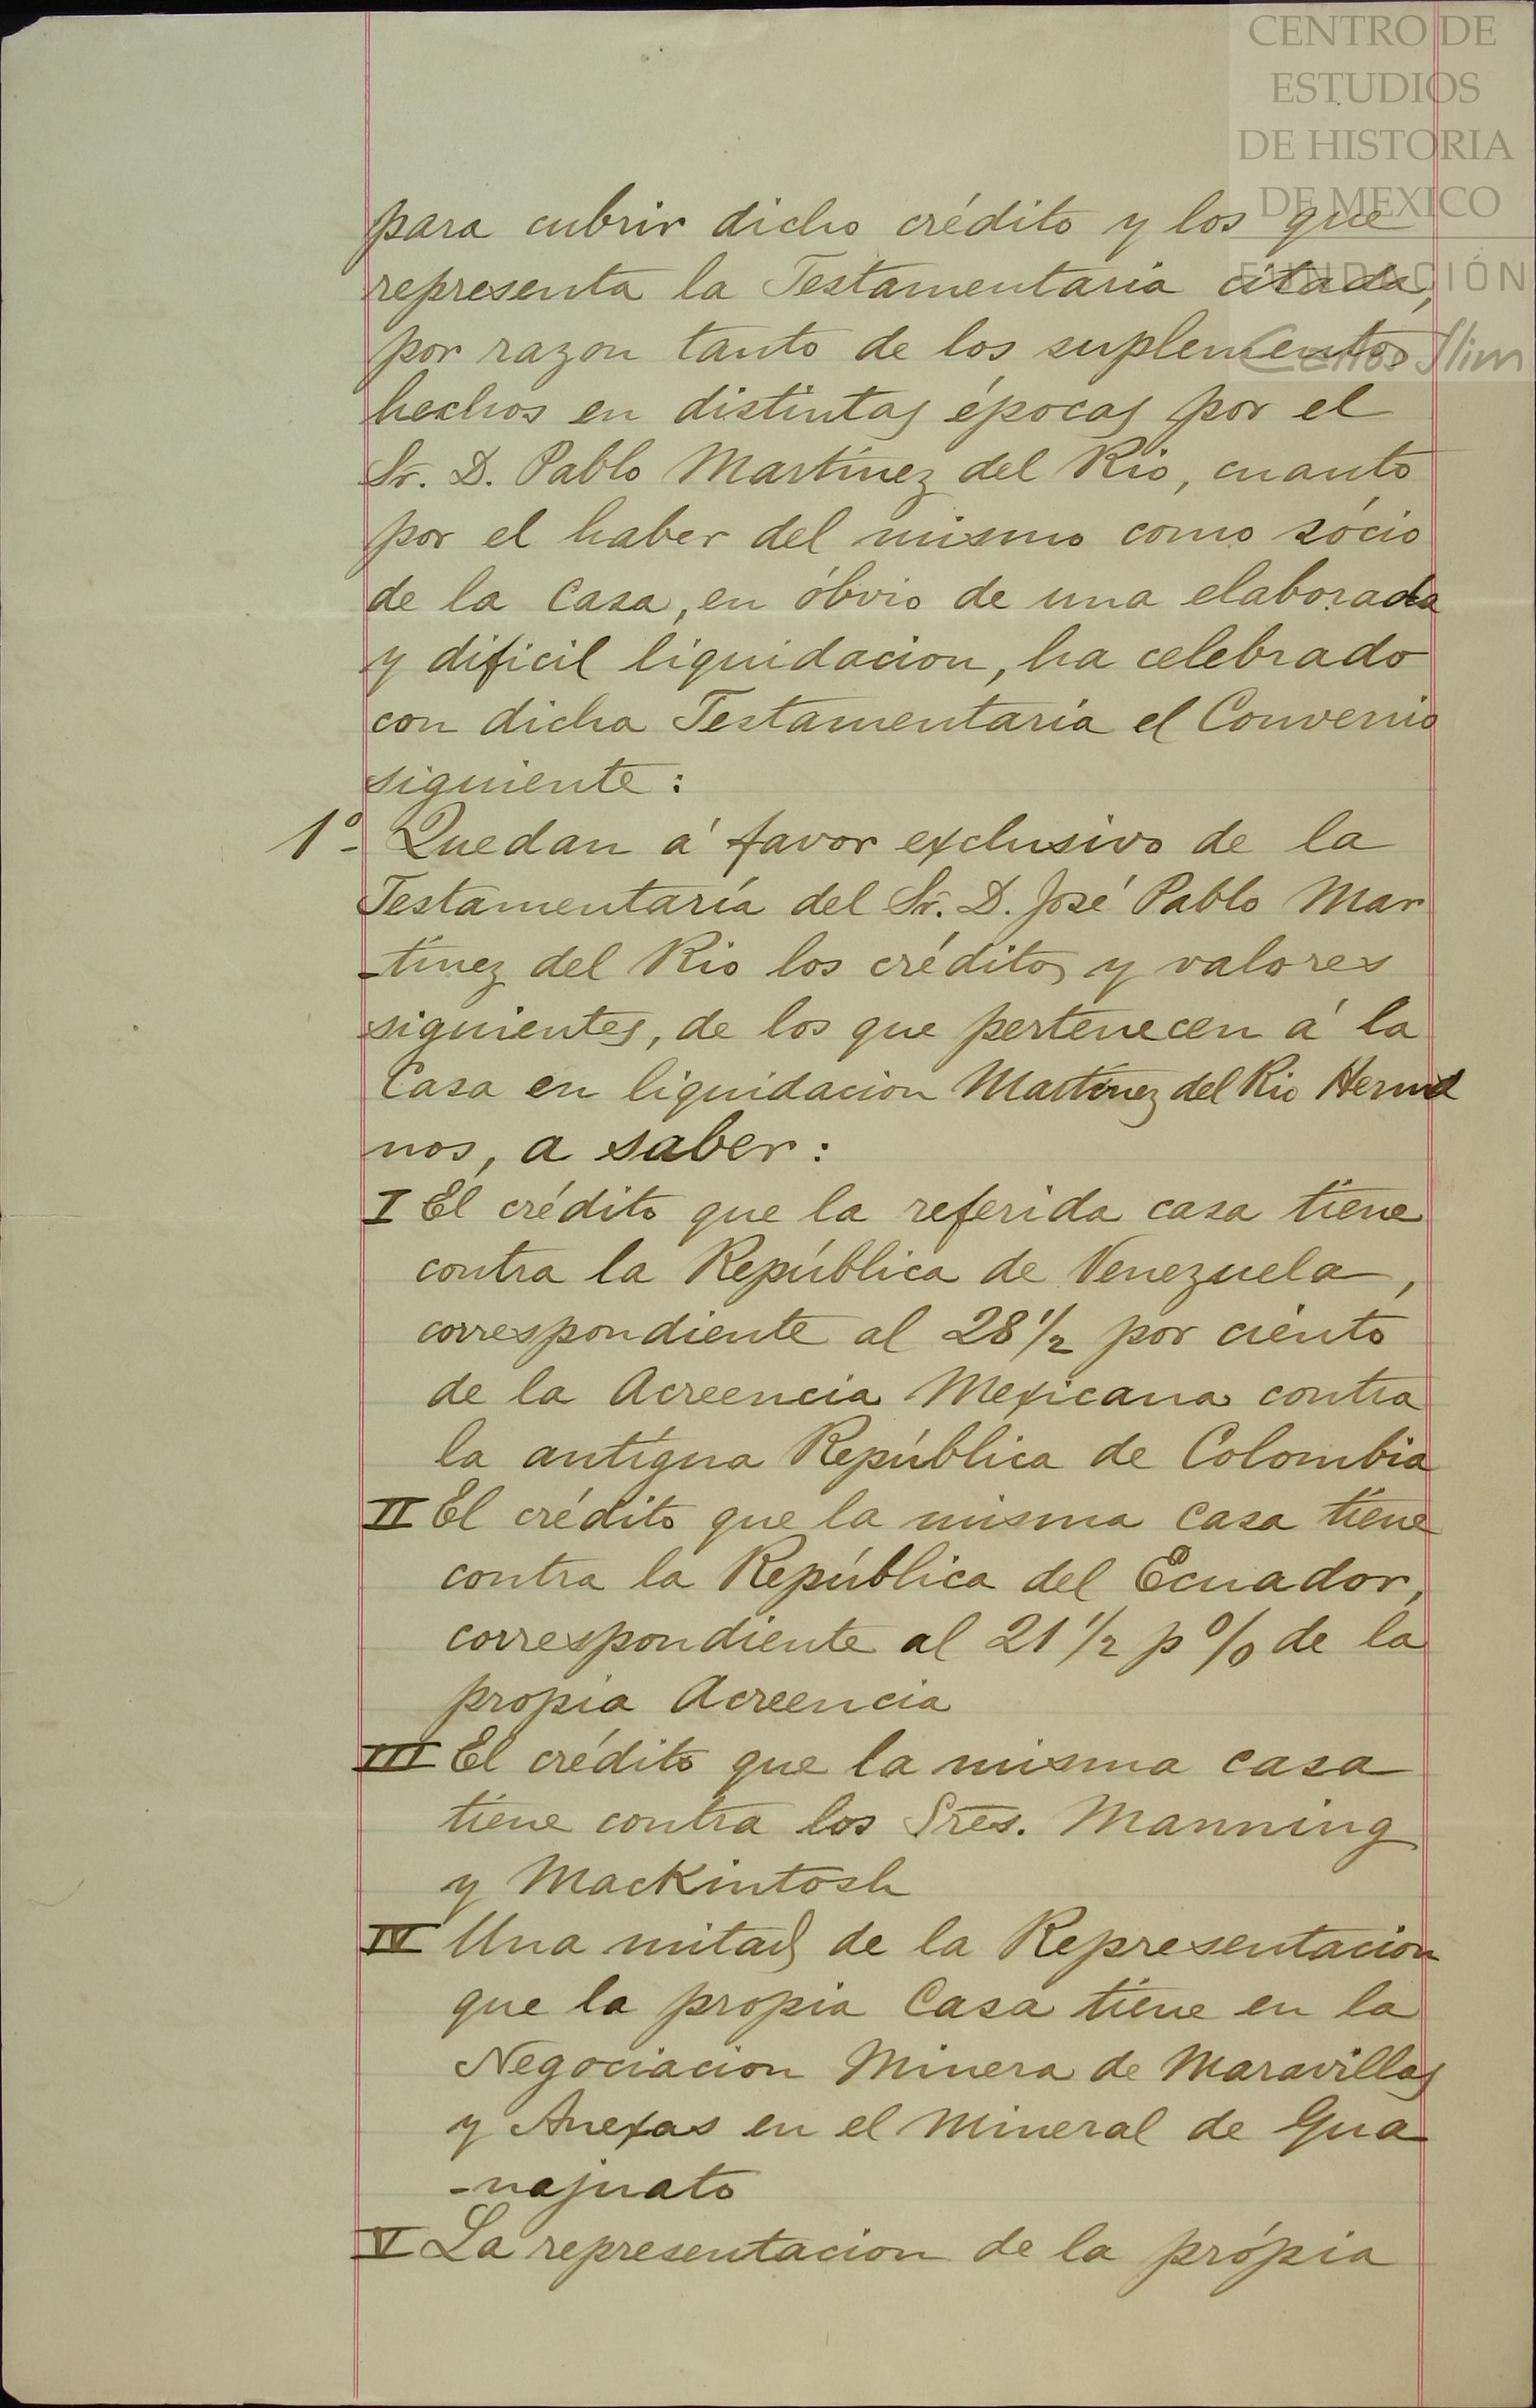 CENTRO DE
ESTUDIOS
DE HISTORIA
DE MEXICO
FUNDACIÓN
Carlos Slim
para cubrir dicho crédito y los que
representa la Testamentaria citada,
por razon tanto de los suplementos
hechos en distintas épocas por el
Sr. D. Pablo Martínez del Rio, cuanto
por el haber del mismo como sócio
de la Casa, en óbvio de una elaborada
y dificil liquidacion, ha celebrado
con dicha Testamentaria el Convenio
siguiente:
1º- Quedan á favor exclusivo de la
Testamentaría del Sr. D. José Pablo Mar
-tínez del Rio los créditos y valores
siguientes, de los que pertenecen á la
Casa en liquidacion Martínez del Rio Herma
nos, a saber:
I El crédito que la referida casa tiene
contra la República de Venezuela,
correspondiente al 28 1/2 por ciento
de la Acreencia Mexicana contra
la antígua República de Colombia
II El crédito que la misma Casa tiene
contra la República del Ecuador,
correspondiente al 21 1/2 p% de la
propia Acreencia
III El crédito que la misma casa
tiene contra los Sres. Manning
y Mackintosh
IV Una mitad de la Representacion
que la propia Casa tiene en la
Negociacion Minera de Maravillas
y Anexas en el Mineral de Gua
-najuato
V La representacion de la própia